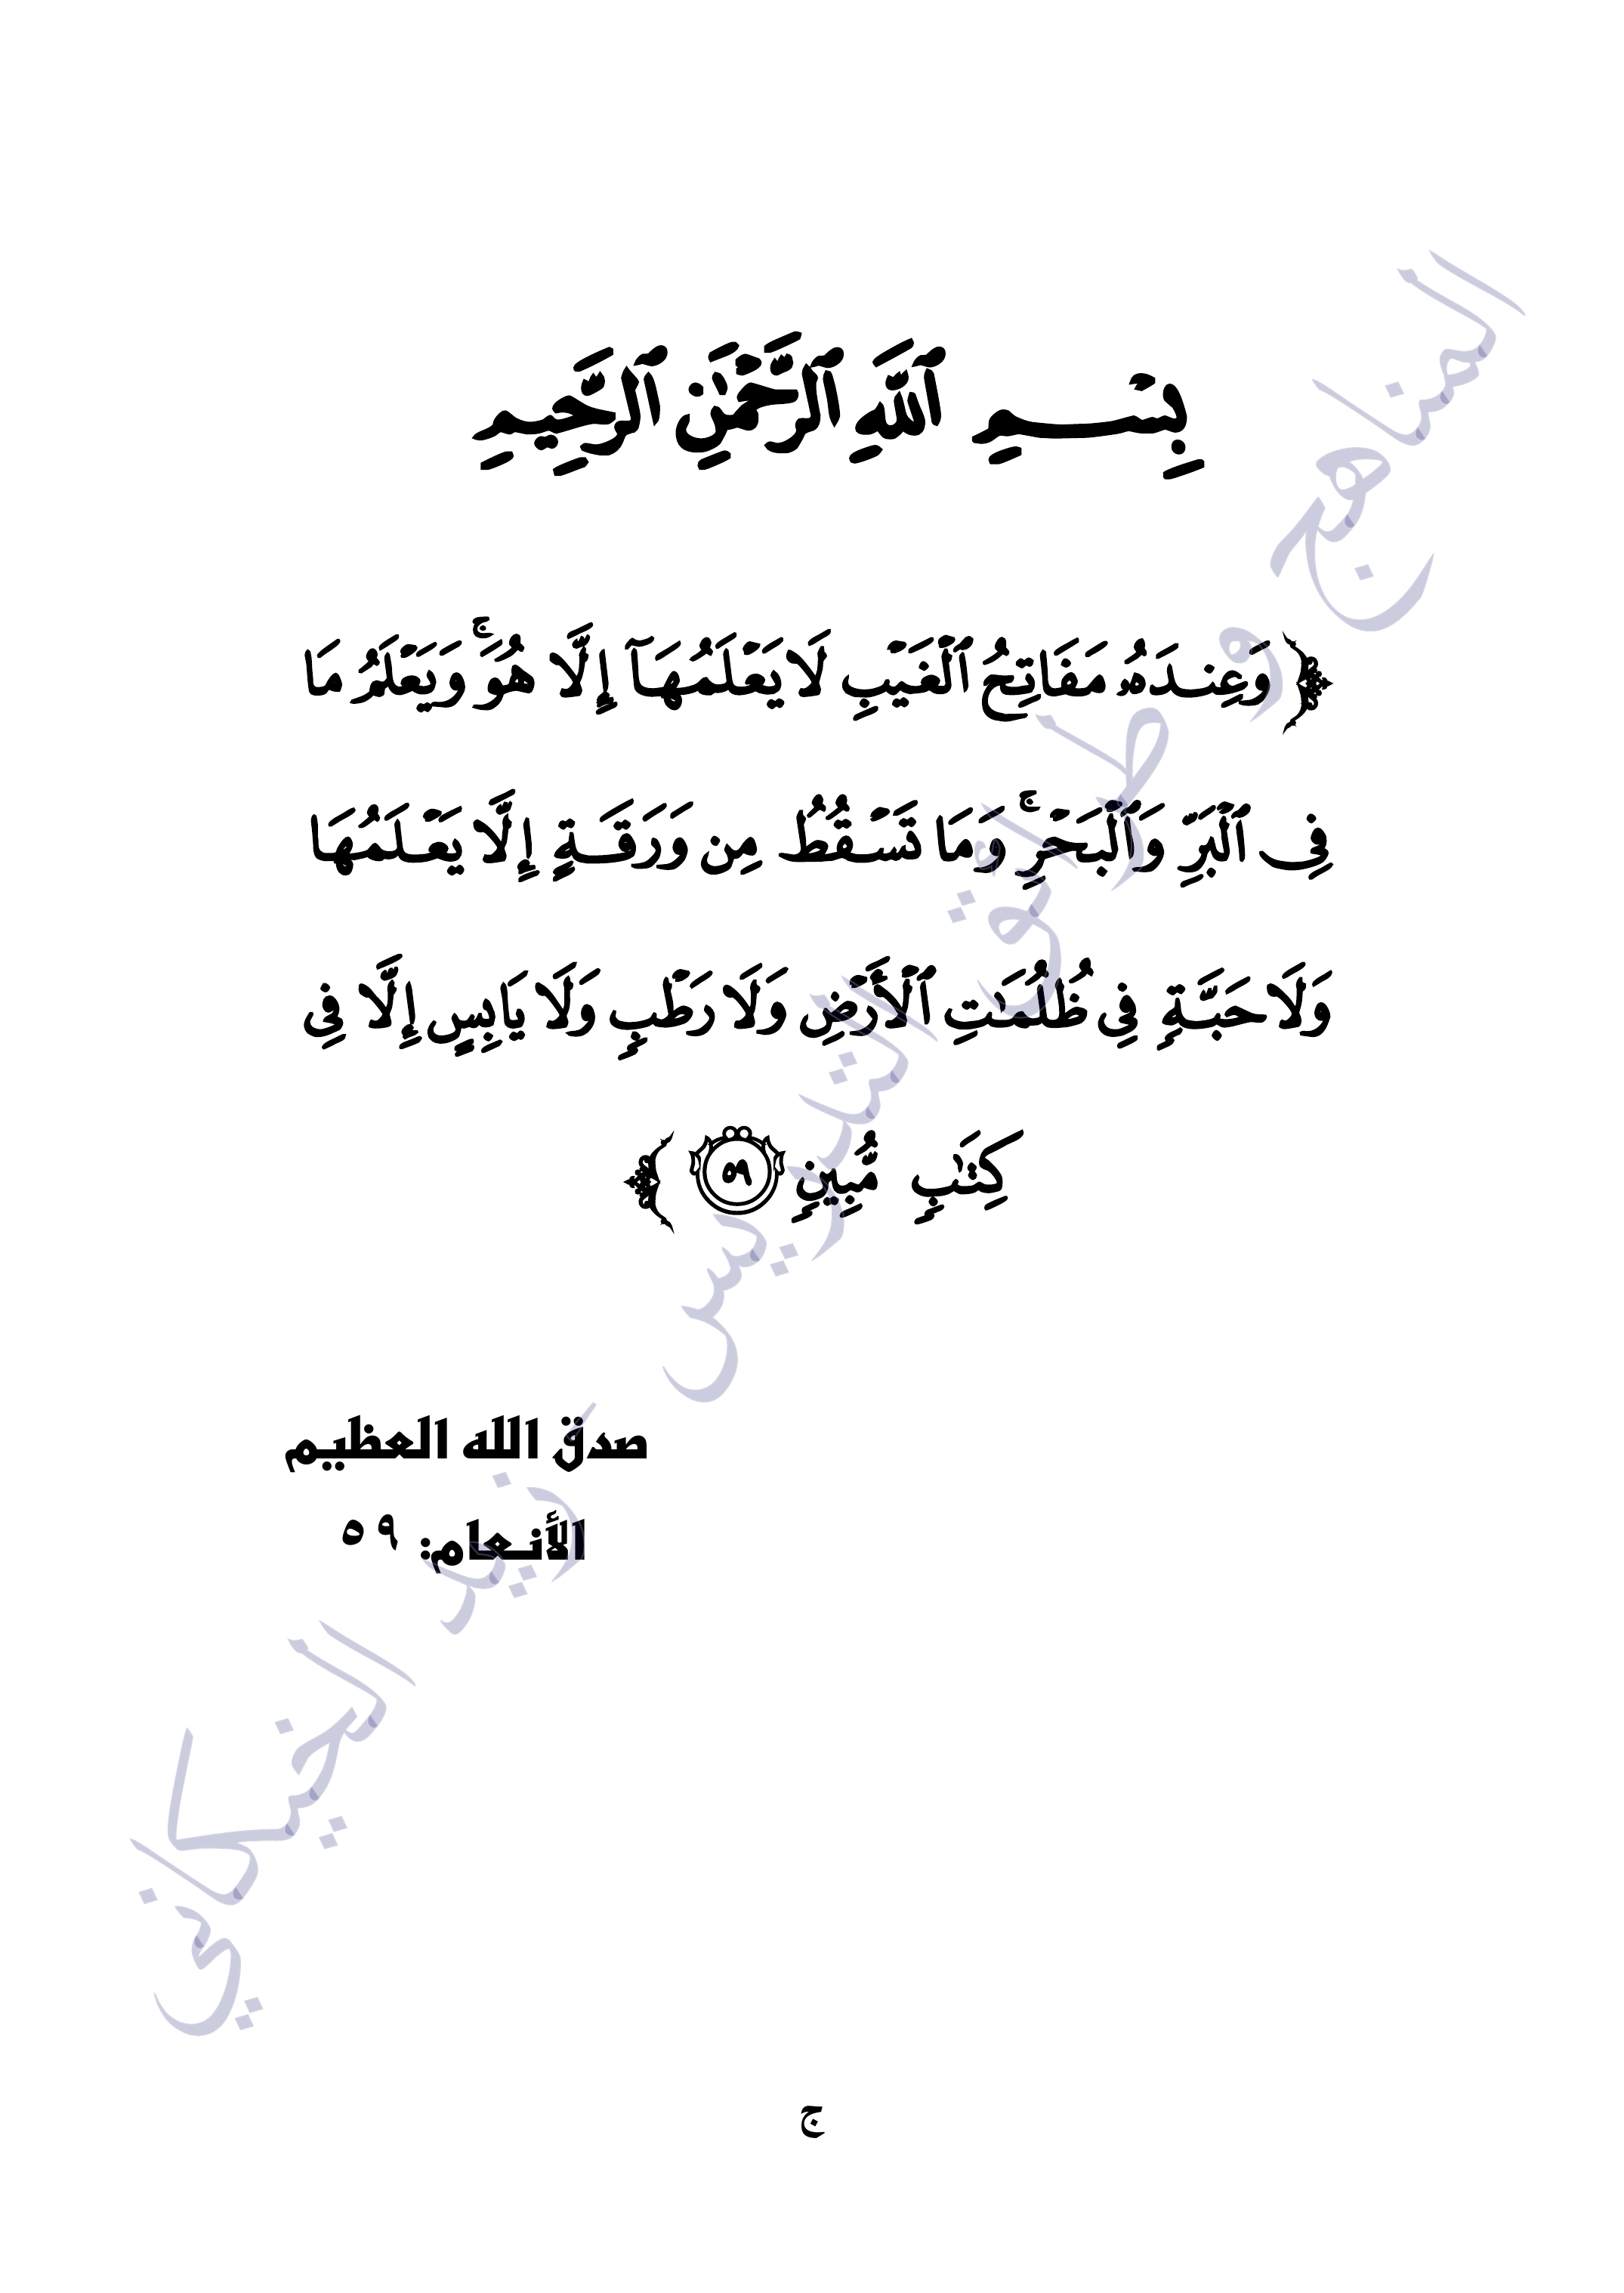 بِسْمِ ٱللَّهِ ٱلرَّحْمَٰنِ ٱلرَّحِيمِ
﴿ وَعِندَهُۥ مَفَاتِحُ ٱلْغَيْبِ لَا يَعْلَمُهَآ إِلَّا هُوَۚ وَيَعْلَمُ مَا
فِى ٱلْبَرِّ وَٱلْبَحْرِۚ وَمَا تَسْقُطُ مِن وَرَقَةٍ إِلَّا يَعْلَمُهَا
وَلَا حَبَّةٍ فِى ظُلُمَٰتِ ٱلْأَرْضِ وَلَا رَطْبٍ وَلَا يَابِسٍ إِلَّا فِى
كِتَٰبٍ مُّبِينٍ ٥٩ ﴾
صدق الله العظيم
الأنعام: ٥٩
المناهج وطرائق التدريس - زيد الخيكاني
ج